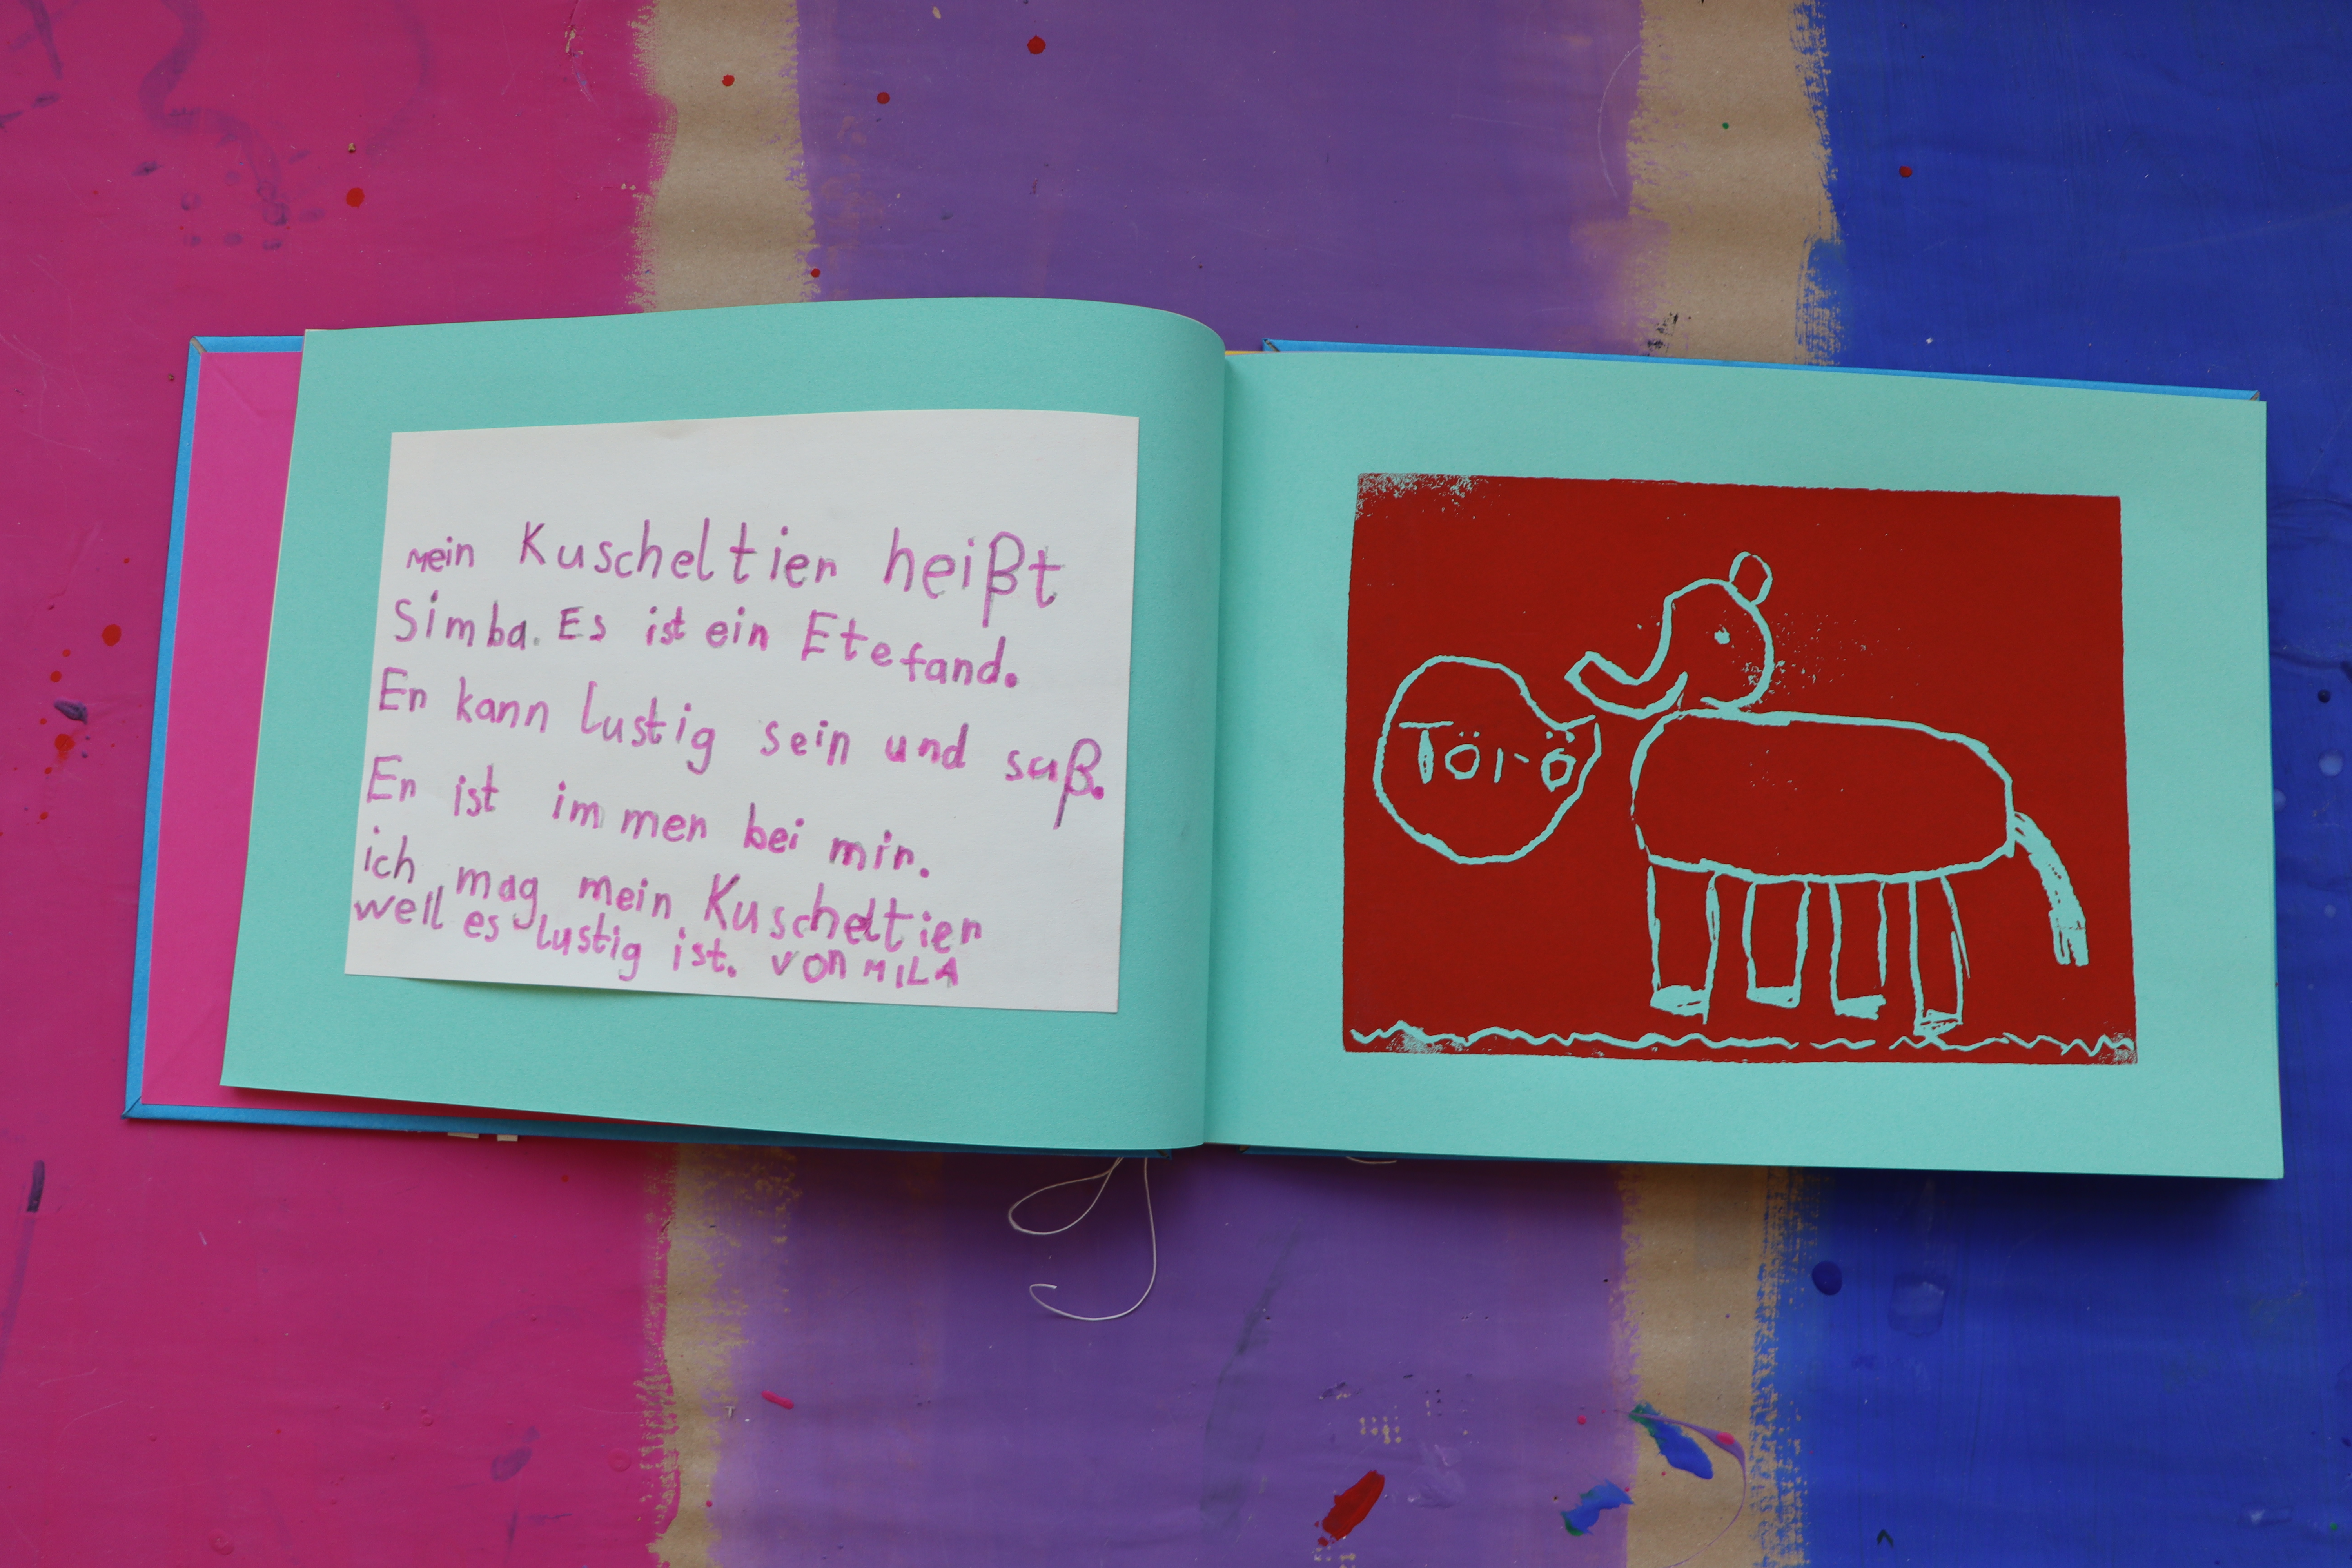 Mein Kuscheltier heißt
Simba. Es ist ein Etefand.
Er kann lustig sein und saß.
Er ist immer bei mir.
ich mag mein Kuscheltier
weil es lustig ist. von MILA
Törö